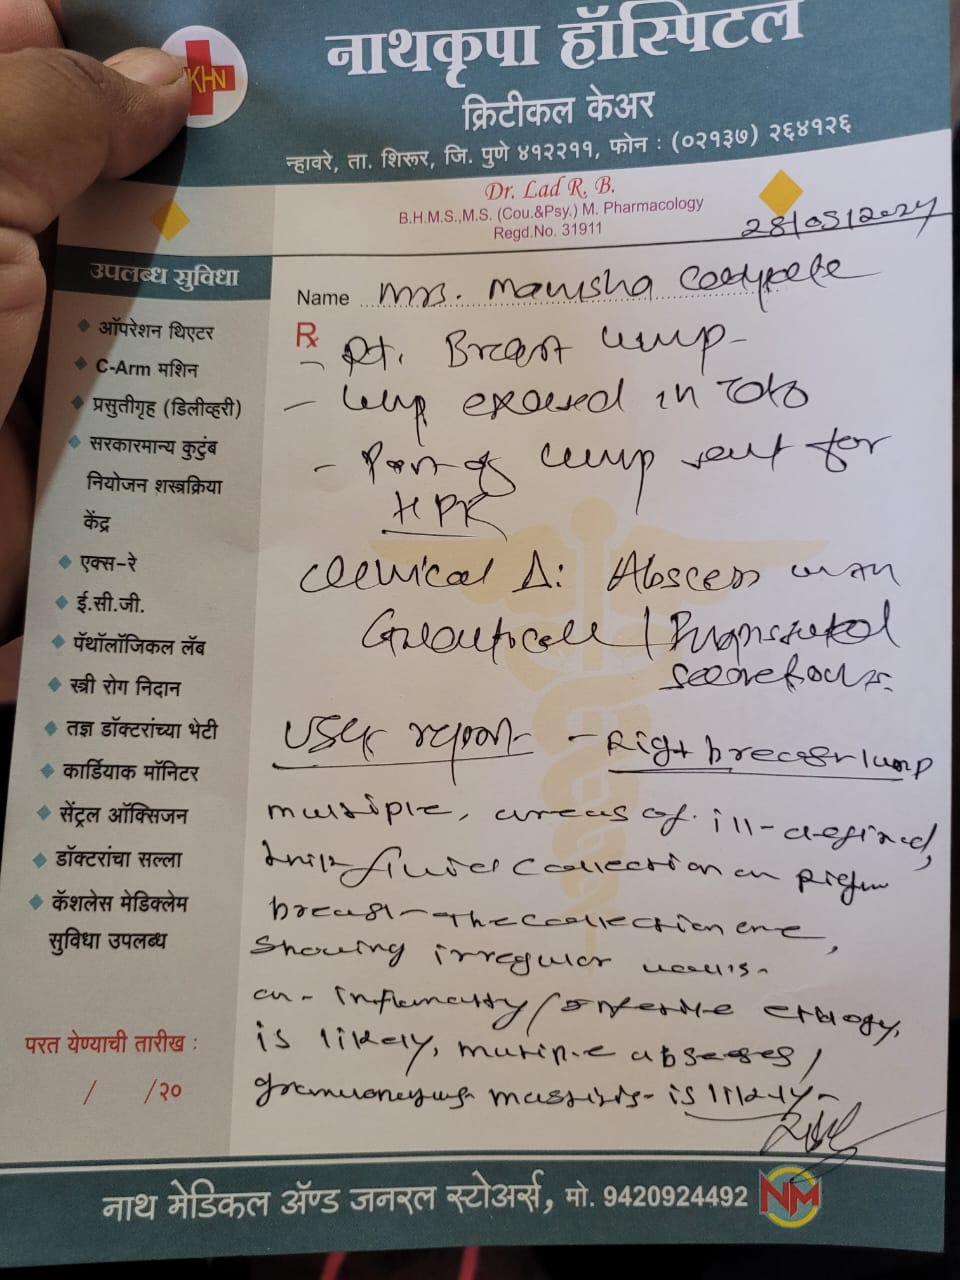 KHN
नाथकृपा हॉस्पिटल
क्रिटीकल केअर
न्हावरे, ता. शिरूर, जि. पुणे ४१२२११, फोन : (०२१३७) २६४१२६
Dr. Lad R. B.
B.H.M.S.,M.S. (Cou.&Psy.) M. Pharmacology
Regd.No. 31911
28/05/2024
उपलब्ध सुविधा
ऑपरेशन थिएटर
C-Arm मशिन
प्रसुतीगृह (डिलीव्हरी)
सरकारमान्य कुटुंब
नियोजन शस्त्रक्रिया
केंद्र
एक्स-रे
ई.सी.जी.
पॅथॉलॉजिकल लॅब
स्त्री रोग निदान
तज्ञ डॉक्टरांच्या भेटी
कार्डियाक मॉनिटर
सेंट्रल ऑक्सिजन
डॉक्टरांचा सल्ला
कॅशलेस मेडिक्लेम
सुविधा उपलब्ध
परत येण्याची तारीख :
/ /२०
Name Mrs. Manisha
Rx
- Rt. Breast lump -
- lump excised in toto
- Part of lump sent for
HPR
Clinical Δ: Abscess with
/
secretions.
USG report - Right breast lump
multiple, areas of ill-defined,
thick fluid collection in Right
breast - The collection are,
showing irregular walls.
an - inflammatory / infective etiology,
is likely, multiple abscesses /
granulomatous mastitis - is likely -
नाथ मेडिकल ॲण्ड जनरल स्टोअर्स, मो. 9420924492 NM